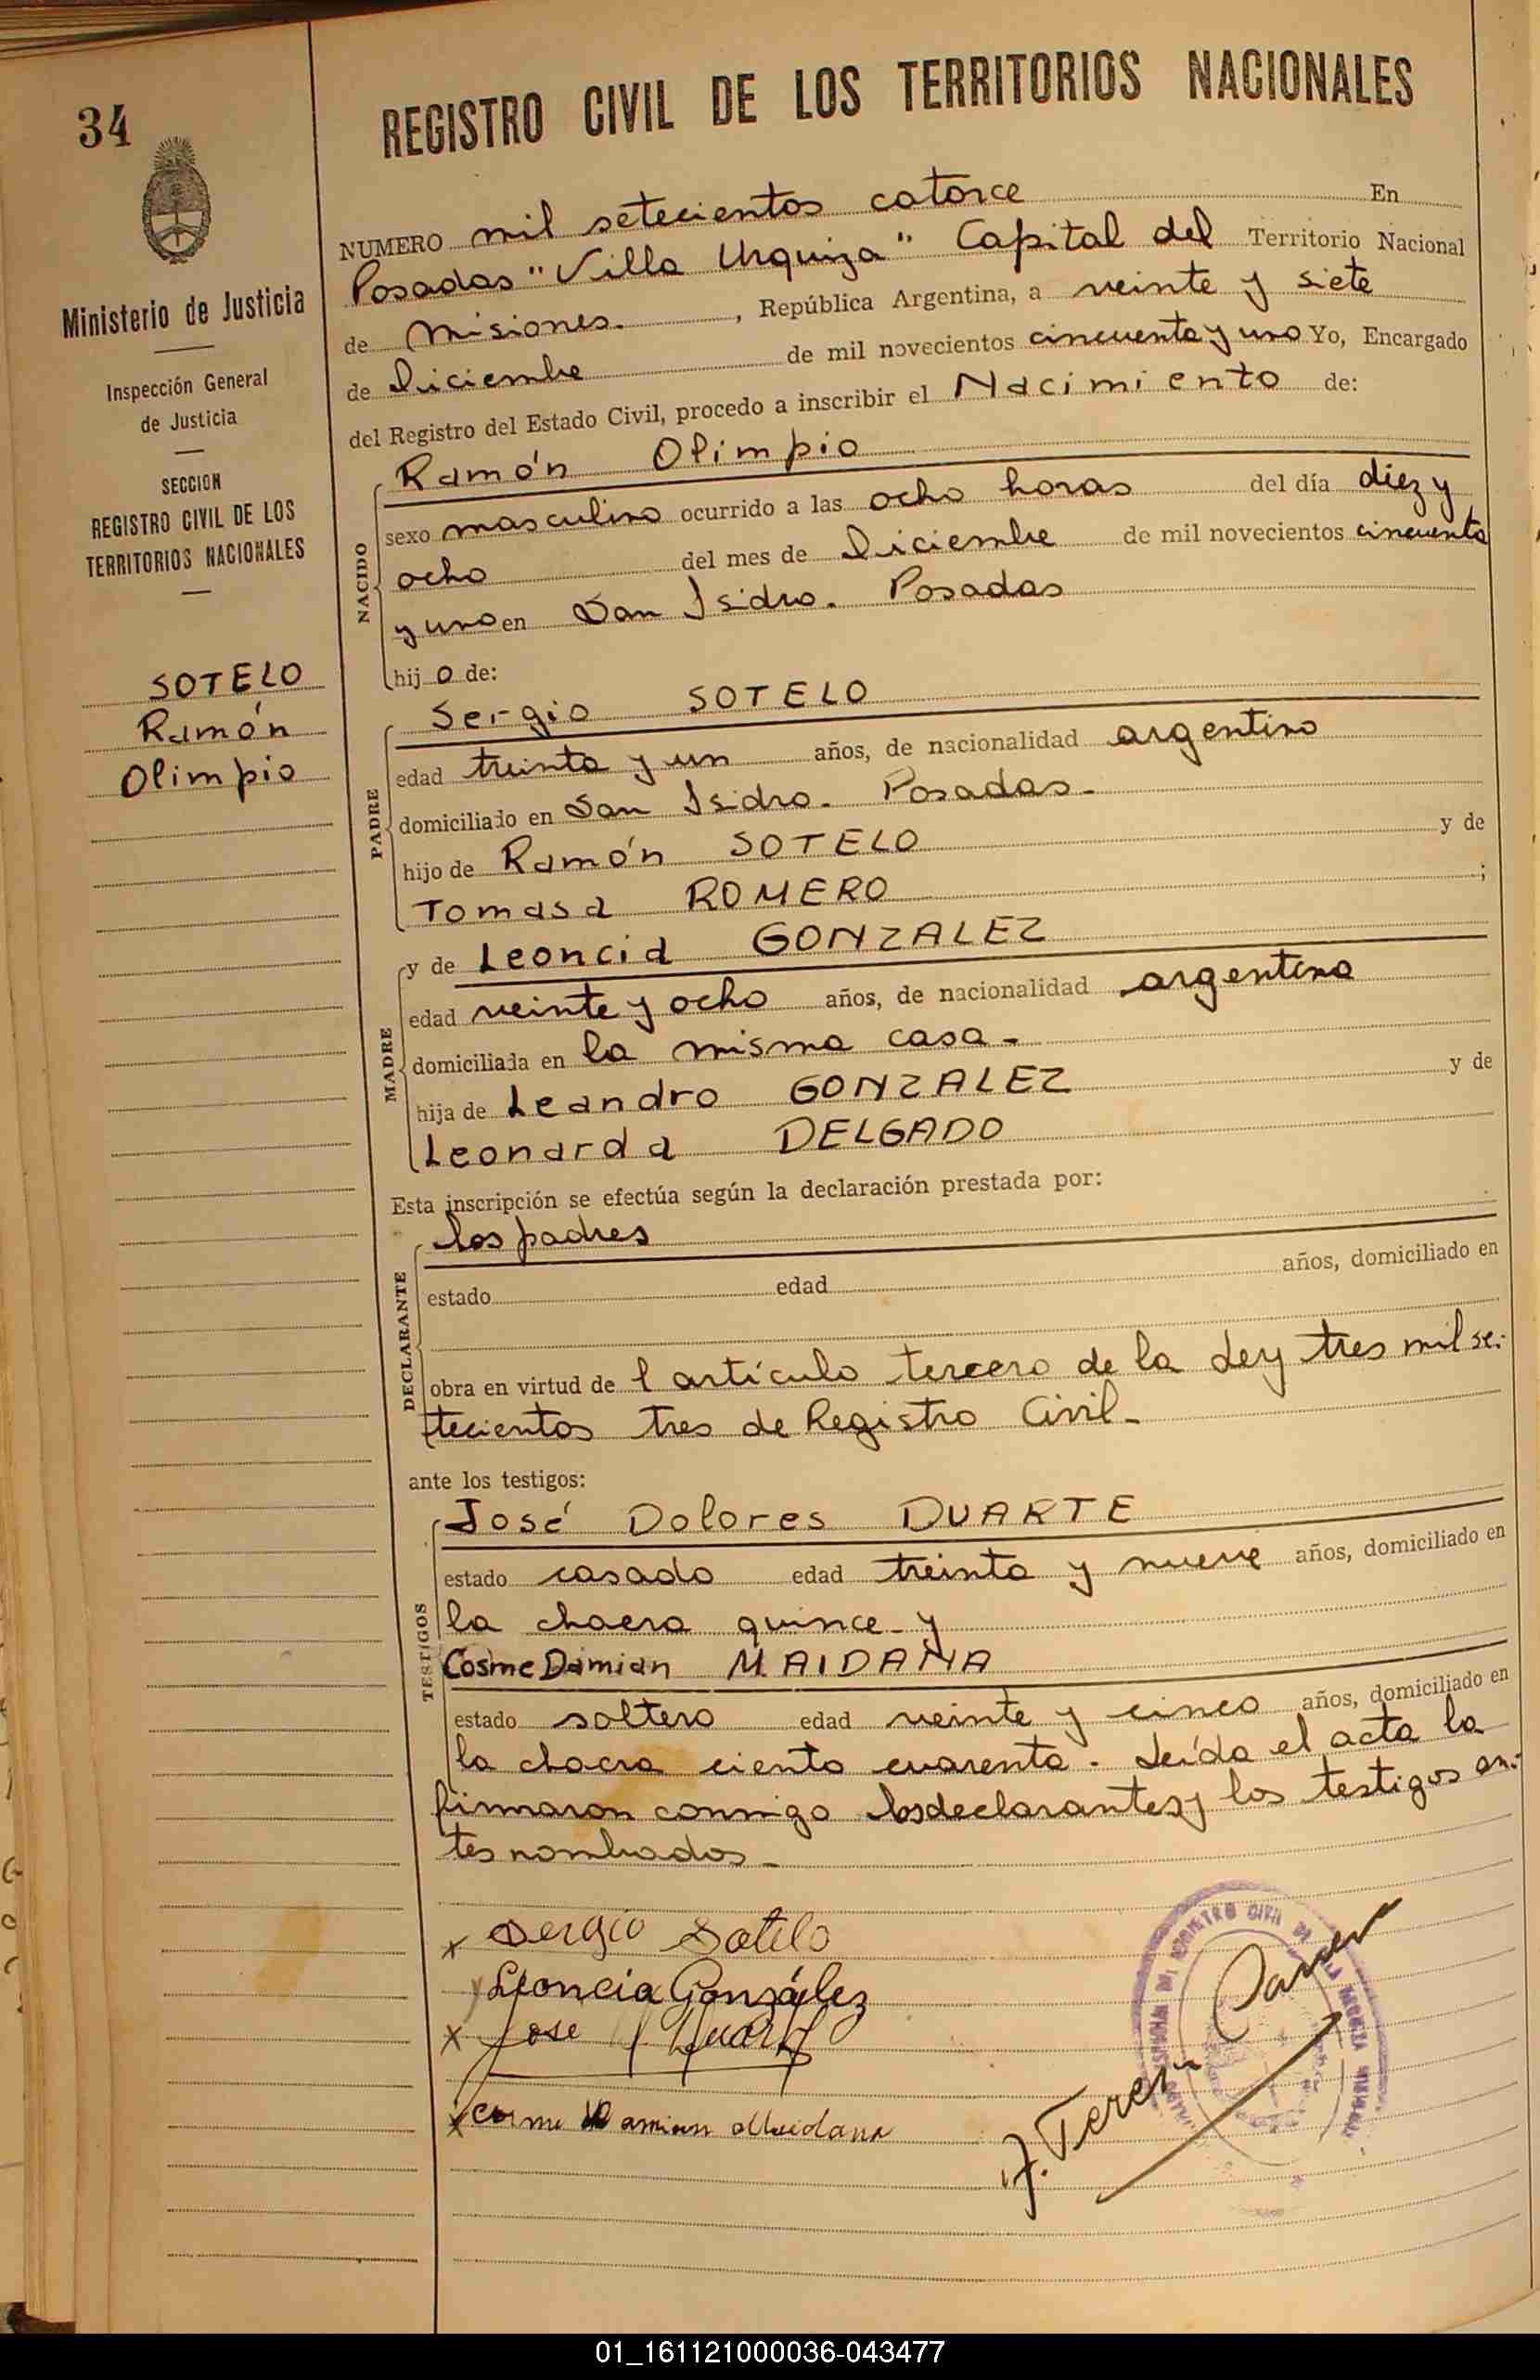 34
REGISTRO CIVIL DE LOS TERRITORIOS NACIONALES
Ministerio de Justicia
Inspección General
de Justicia
SECCION
REGISTRO CIVIL DE LOS
TERRITORIOS NACIONALES
SOTELO
Ramón
Olimpio
NUMERO mil setecientos catorce En
Posadas "Villa Urquiza" Capital del Territorio Nacional
de Misiones. , República Argentina, a veinte y siete
de Diciembre de mil novecientos cincuenta y uno Yo, Encargado
del Registro del Estado Civil, procedo a inscribir el Nacimiento de:
NACIDO
Ramón Olimpio
sexo masculino ocurrido a las ocho horas del día diez y
ocho del mes de Diciembre de mil novecientos cincuenta
y uno en San Isidro. Posadas
hijo de:
PADRE
Sergio SOTELO
edad treinta y un años, de nacionalidad argentino
domiciliado en San Isidro. Posadas-
hijo de Ramón SOTELO y de
Tomasa ROMERO ;
MADRE
y de Leoncia GONZALEZ
edad veinte y ocho años, de nacionalidad argentina
domiciliada en la misma casa-
hija de Leandro GONZALEZ y de
Leonarda DELGADO
Esta inscripción se efectúa según la declaración prestada por:
DECLARANTE
los padres
estado edad años, domiciliado en
obra en virtud de l artículo tercero de la Ley tres mil se-
tecientos tres de Registro Civil-
ante los testigos:
TESTIGOS
José Dolores DUARTE
estado casado edad treinta y nueve años, domiciliado en
la chacra quince-y
Cosme Damian MAIDANA
estado soltero edad veinte y cinco años, domiciliado en
la chacra ciento cuarenta. Leída el acta la
firmaron conmigo los declarantes y los testigos an-
tes nombrados-
x Sergio Sotelo
Leoncia González
x Jose D Duarte
x cosme Damian Maidana
REGISTRO CIVIL
01_161121000036-043477